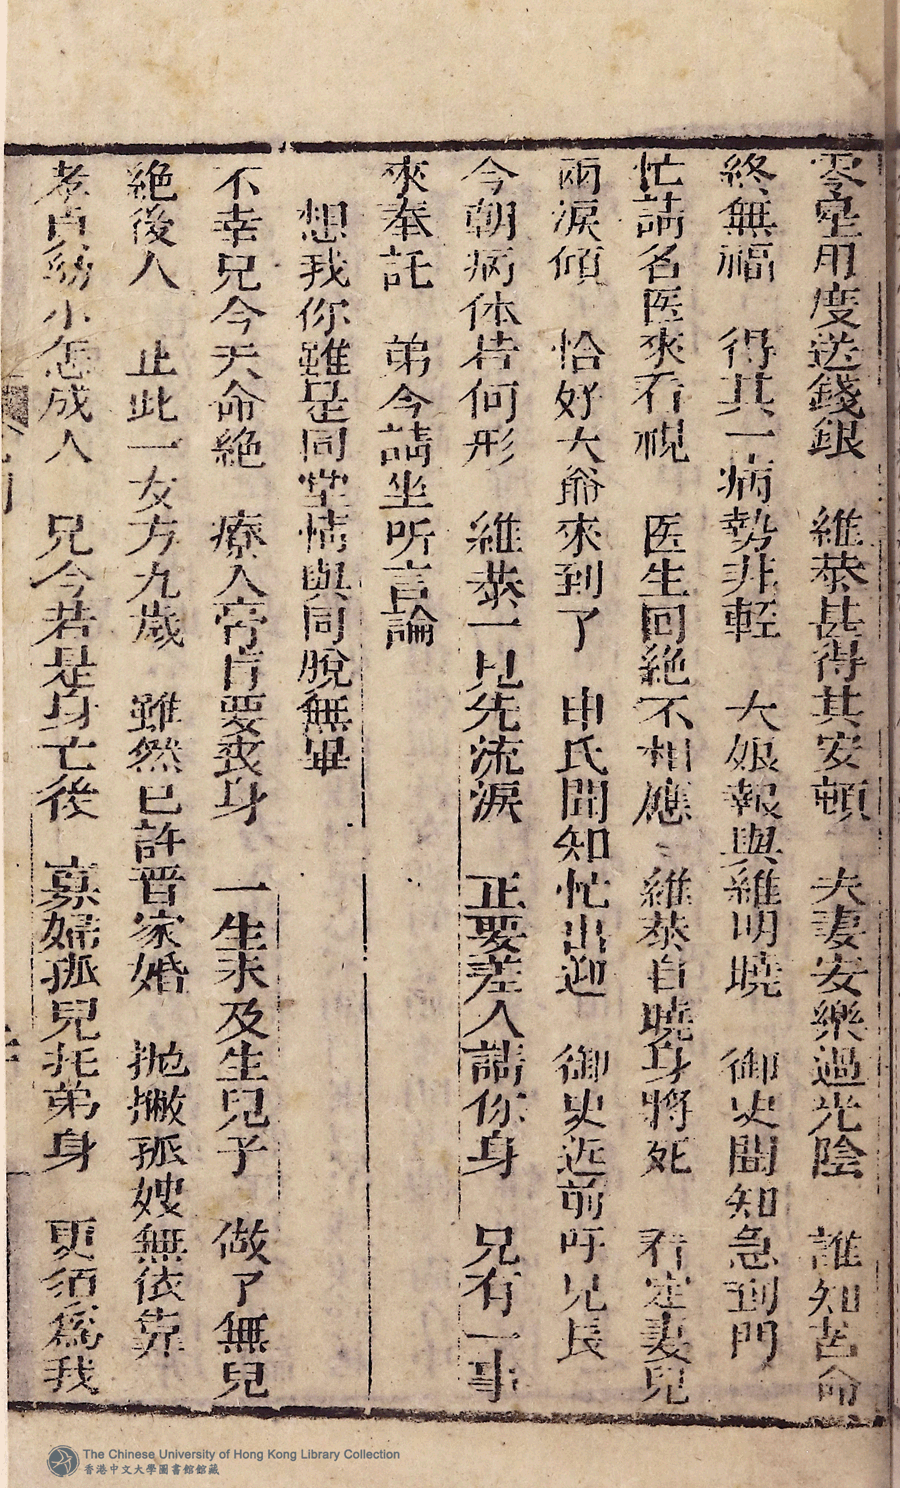 零星用度送錢銀　維恭甚得其安頓　夫妻安樂過光陰　誰知苦命
終無福　得其一病勢非輕　大娘報與維明曉　御史聞知急到門
忙請名医來看視　医生回絶不相應　維恭自曉身將死　看定妻兒
兩淚傾　恰好大爺來到了　申氏聞知忙出迎　御史近前呼兄長
今朝病体若何形　維恭一見先流淚　正要差人請你身　兄有一事
來奉託　弟今請坐听言論
想我你雖是同堂情與同脫無畢
不幸兄今天命絶　療入膏肓要丧身　一生未及生兒子　做了無兒
絶後人　止此一女方九歲　雖然已許晋家婚　抛撇孤嫂無依靠
孝貞幼小怎成人　兄今若是身亡後　寡婦孤兒托弟身　更須爲我
The Chinese University of Hong Kong Library Collection
香港中文大學圖書館館藏